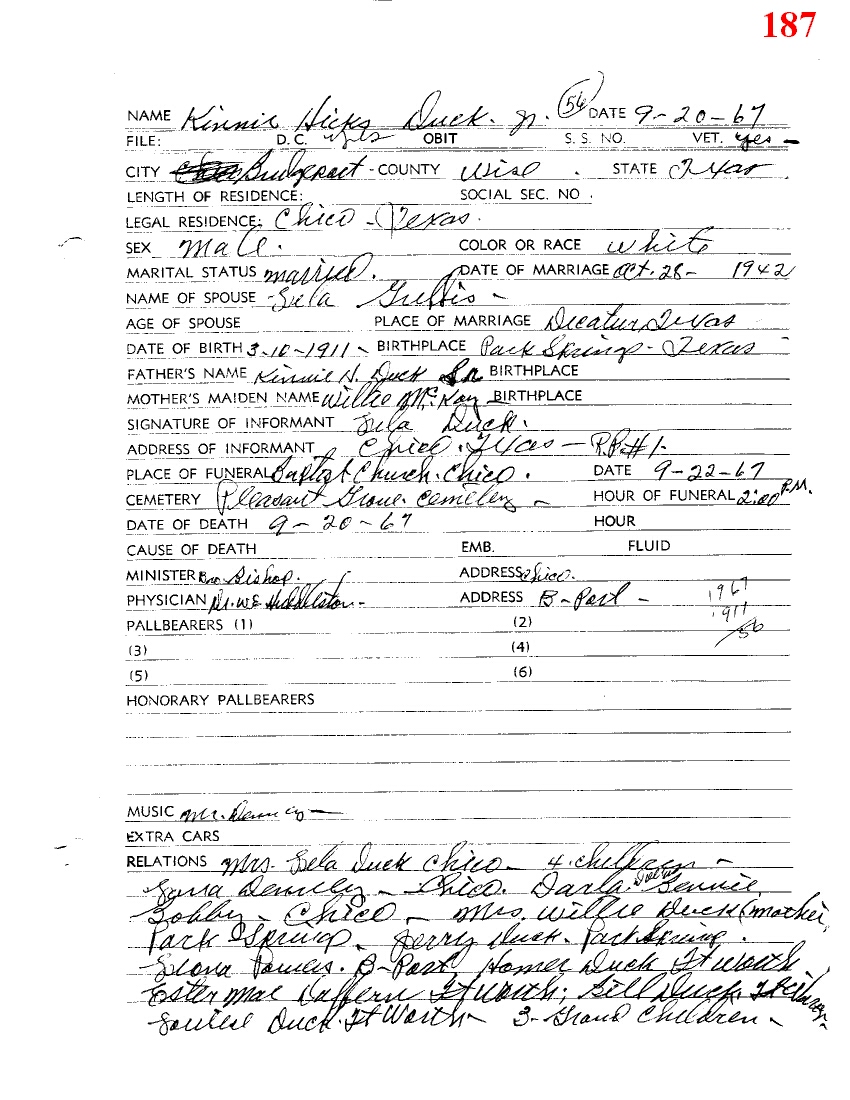 187
NAME Kinnie Hicks Duck. Jr. (56) DATE 9-20-67
FILE: D.C. yes OBIT S. S. NO. VET. yes -
CITY Bridgeport - COUNTY Wise . STATE Texas .
LENGTH OF RESIDENCE: SOCIAL SEC. NO .
LEGAL RESIDENCE: Chico - Texas.
SEX Male. COLOR OR RACE white
MARITAL STATUS married. DATE OF MARRIAGE Oct. 28 - 1942
NAME OF SPOUSE -
AGE OF SPOUSE PLACE OF MARRIAGE Decatur, Texas
DATE OF BIRTH 3-10-1911 - BIRTHPLACE Park Springs - Texas -
FATHER'S NAME Kinnie H. Duck Sr. BIRTHPLACE
MOTHER'S MAIDEN NAME Willie McKay BIRTHPLACE
SIGNATURE OF INFORMANT Duck.
ADDRESS OF INFORMANT Chico. Texas - #1-
PLACE OF FUNERAL Baptist Church. Chico. DATE 9-22-67
CEMETERY Pleasant Grove. Cemetery - HOUR OF FUNERAL 2:00 P.M.
DATE OF DEATH 9-20-67 HOUR
CAUSE OF DEATH EMB. FLUID
MINISTER Bro Bishop. ADDRESS Chico.
PHYSICIAN Dr. W.E. Huddleston - ADDRESS B-Port - 1967
1911
PALLBEARERS (1) (2) 56
(3) (4)
(5) (6)
HONORARY PALLBEARERS
MUSIC Mr.
EXTRA CARS
RELATIONS Mrs. Duck Chico - 4 children -
- Chico. Darla.
Bobby - Chico - Mrs. Willie Duck (mother,
Park Springs - Jerry Duck. Park Springs.
B-Port Homer Duck Ft Worth
Ester Mae Daffern Ft Worth; Bill Duck.
Duck. Ft Worth - 3-Grand Children -